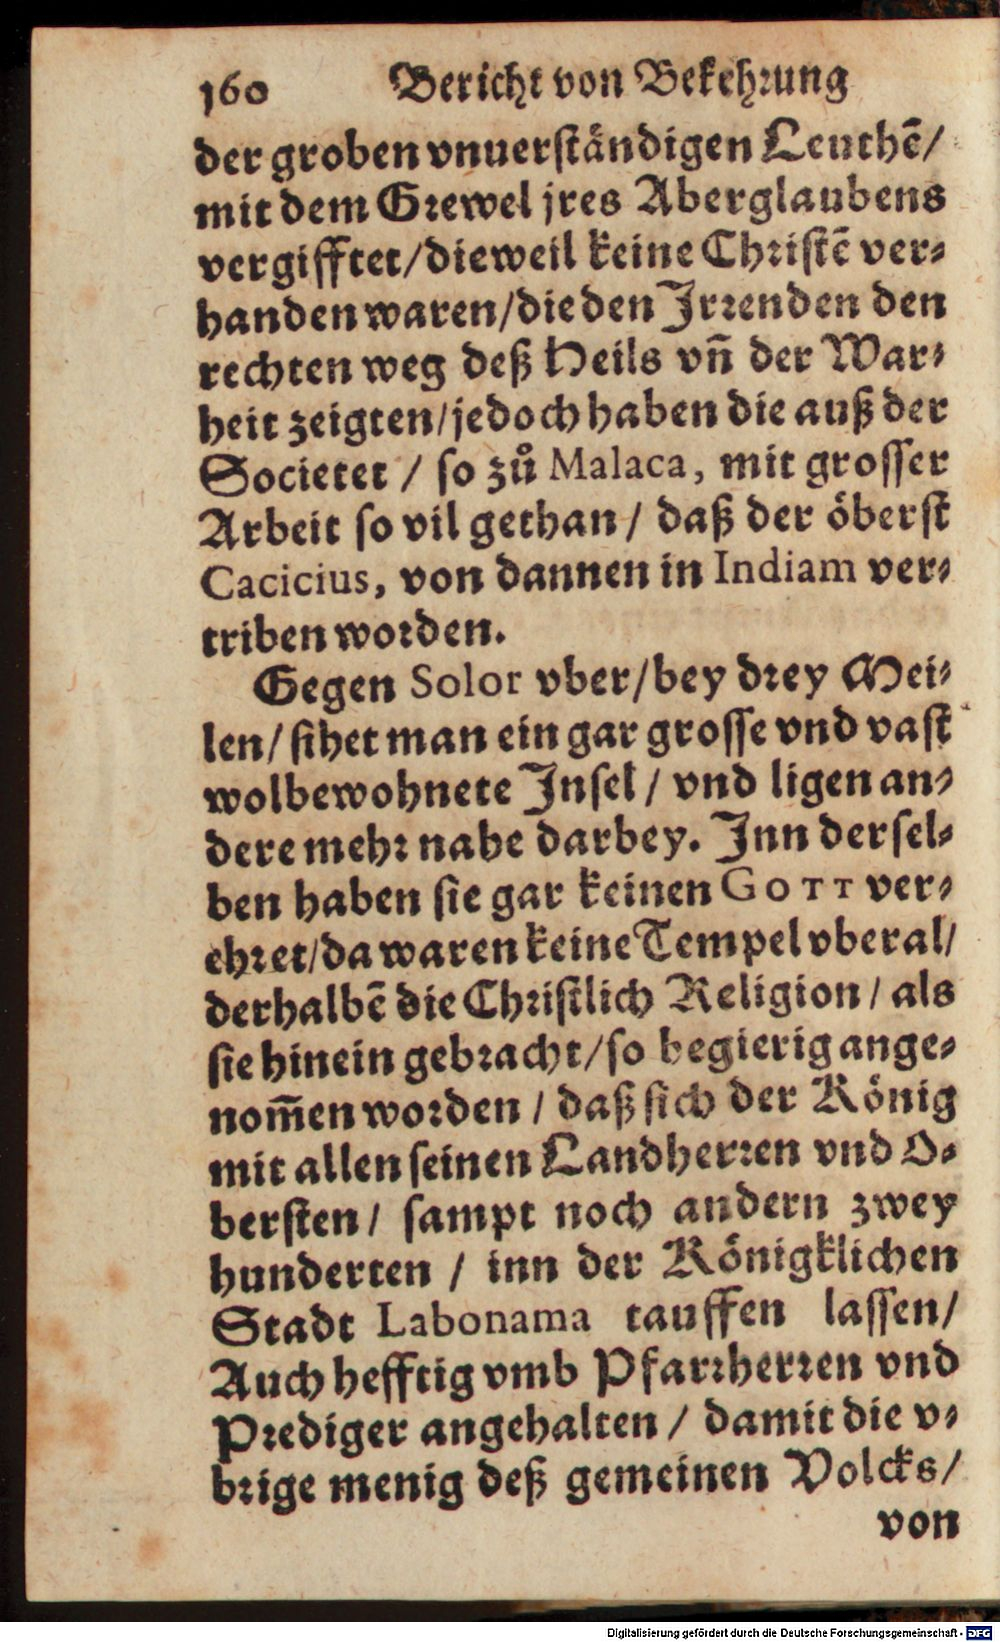 160 Bericht von Bekehrung
der groben vnuerständigen Leuthẽ/
mit dem Grewel jres Aberglaubens
vergifftet/dieweil keine Christẽ ver-
handen waren/die den Irrenden den
rechten weg deß Heils vñ der War-
heit zeigten/jedoch haben die auß der
Societet / so zů Malaca, mit grosser
Arbeit so vil gethan/ daß der öberst
Cacicius, von dannen in Indiam ver-
triben worden.
Gegen Solor vber/bey drey Mei-
len/ sihet man ein gar grosse vnd vast
wolbewohnete Insel / vnd ligen an-
dere mehr nahe darbey. Inn dersel-
ben haben sie gar keinen GOTT ver-
ehret/da waren keine Tempel vberal/
derhalbẽ die Christlich Religion / als
sie hinein gebracht/so begierig ange-
nom̃en worden / daß sich der König
mit allen seinen Landherren vnd O-
bersten/ sampt noch andern zwey
hunderten / inn der Königklichen
Stadt Labonama tauffen lassen/
Auch hefftig vmb Pfarrherren vnd
Prediger angehalten / damit die v-
brige menig deß gemeinen Volcks/
von
Digitalisierung gefördert durch die Deutsche Forschungsgemeinschaft - DFG